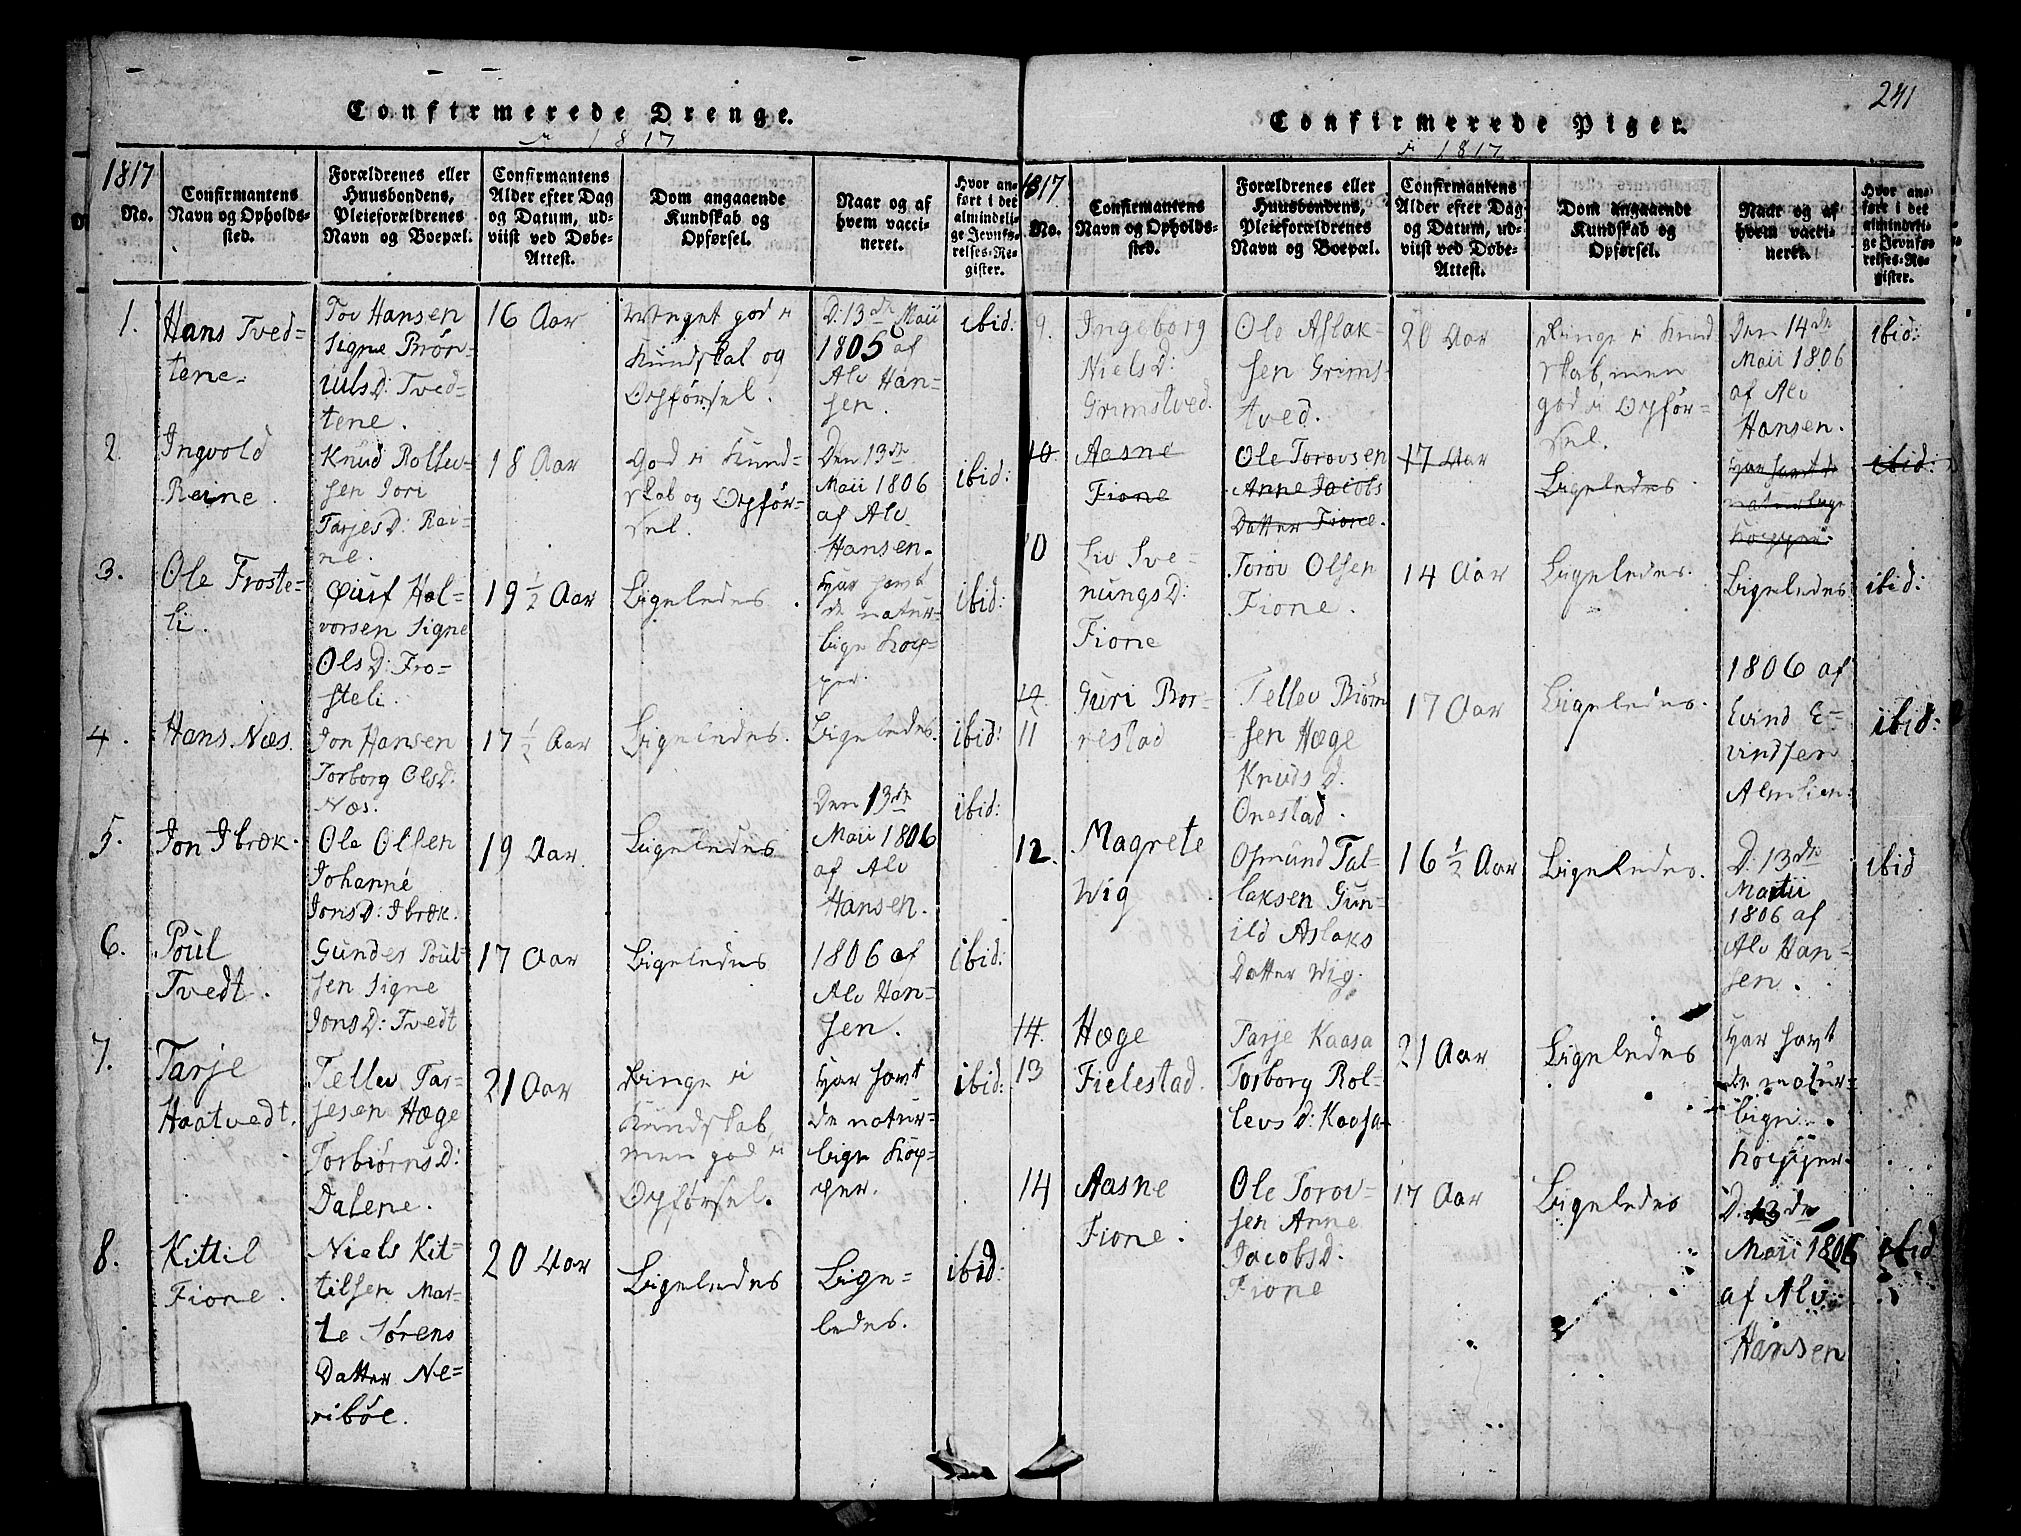 Confirmerede Drenge.
1817
1817
No.
Confirmantens
Navn og Opholds-
sted.
Forældrenes eller
Huusbondens,
Pleieforældrenes
Navn og Boepæl.
Confirmantens
Alder efter Dag
og Datum, ud-
viist ved Døbe-
Attest.
Dom angaaende
Kundskab og
Opførsel.
Naar og af
hvem vacci-
neret.
Hvor an-
ført i det
almindeli-
ge Jevnfø-
relses-Re-
gister.
1.
Hans Tved-
tene.
Tov Hansen
Signe Brøn-
iulsD: Tved-
tene.
16 Aar
Meget god i
Kundskab og
Opførsel.
D: 13de Maii
1805 af
Alv Han-
sen.
ibid:
2.
Ingvold
Reine.
Knud Rollev-
sen Jori
TarjesD: Rei-
ne.
18 Aar
God i Kund-
skab og Opfør-
sel.
Den 13de
Maii 1806
af Alv
Hansen.
ibid:
3.
Ole Froste-
li.
Hal-
vorsen Signe
OlsD: Fro-
steli.
19 1/2 Aar
Ligeledes.
Har havt
de natur-
lige Kop-
per.
ibid:
4.
Hans Næs.
Jon Hansen
Torborg OlsD.
Næs.
17 1/2 Aar
Ligeledes.
Ligeledes.
ibid:
5.
Jon Ibræk.
Ole Olsen
Johanne
JonsD: Ibræk.
19 Aar.
Ligeledes
Den 13de
Maii 1806
af Alv
Hansen.
ibid:
6.
Poul
Tvedt.
Gunder Poul-
sen Signe
JonsD: Tvedt
17 Aar
Ligeledes
1806 af
Alv Han-
sen.
ibid:
7.
Tarje
Haatvedt.
Tellev Tar-
jesen Hæge
TorbiørnsD:
Dalene.
21 Aar
Ringe i
Kundskab,
men god i
Opførsel.
Har havt
de natur-
lige Kop-
per.
ibid:
8.
Kittil
Fione.
Niels Kit-
tilsen Mar-
te Sørens
Datter Ne-
ribøe.
20 Aar
Ligeledes
Lige-
ledes.
ibid:
241
Confirmerede Piger.
1817
1817
No.
Confirmantens
Navn og Opholds-
sted.
Forældrenes eller
Huusbondens,
Pleieforældrenes
Navn og Boepæl.
Confirmantens
Alder efter Dag
og Datum, ud-
viist ved Døbe-
Attest.
Dom angaaende
Kundskab og
Opførsel.
Naar og af
hvem vacci-
neret.
Hvor an-
ført i det
almindeli-
ge Jevnfø-
relses-Re-
gister.
9.
Ingeborg
NielsD:
Grimstved.
Ole Aslak-
sen Grims-
tved.
20 Aar
Ringe i Kund
skab, men
god i Opfør-
sel.
Den 14de
Maii 1806
af Alv
Hansen.
ibid:
10.
Aasne
Fione
Ole Torovsen
Anne Jacobs
Datter Fione.
17 Aar
Ligeledes.
Har havt de
naturlige
Kopper.
ibid:
10
Liv Sve-
nungsD:
Fione
Torov Olsen
Fione.
14 Aar
Ligeledes.
Ligeledes
ibid:
11
Guri Bor-
restad
Tellev Biørn
sen Hæge
KnudsD.
Onestad.
17 Aar
Ligeledes.
1806 af
Evind E-
vindsen
ibid:
12.
Magrete
Wig
Osmund Tal-
laksen Gun-
ild Aslaks
Datter Wig.
16 1/2 Aar
Ligeledes.
D. 13de
Maii
1806 af
Alv Han-
sen.
ibid
14.
13
Hæge
Fielestad.
Tarje Kaasa
Torborg Rol-
levsD: Kaasa
21 Aar
Ligeledes
Har havt
de natur-
lige
Kopper.
14
Aasne
Fione.
Ole Torov-
sen Anne
JacobsD.
Fione
17 Aar
Ligeledes
D. 13de
Maii 1806
af Alv
Hansen
ibid